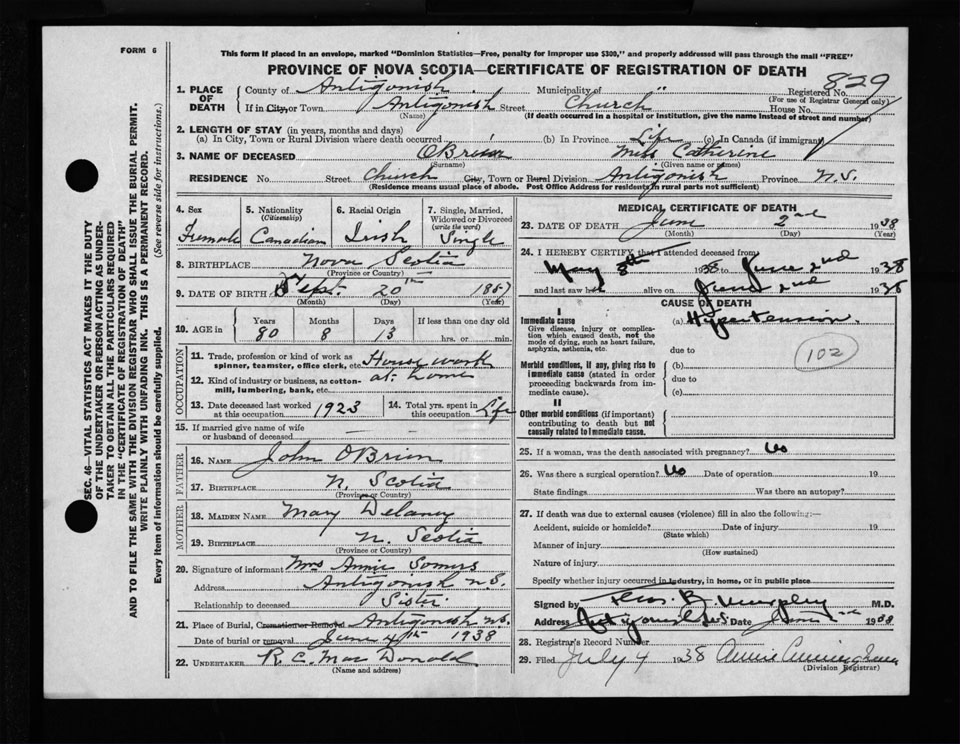 FORM 6
This form if placed in an envelope, marked "Dominion Statistics—Free, penalty for improper use $300," and properly addressed will pass through the mail "FREE"
PROVINCE OF NOVA SCOTIA—CERTIFICATE OF REGISTRATION OF DEATH
829
1. PLACE OF DEATH
County of Antigonish Municipality of " Registered No.
(For use of Registrar General only)
If in City, or Town Antigonish Street Church House No.
(Name) (If death occurred in a hospital or institution, give the name instead of street and number)
2. LENGTH OF STAY (in years, months and days)
(a) In City, Town or Rural Division where death occurred (b) In Province Life (c) In Canada (if immigrant)
3. NAME OF DECEASED O'Brien Miss Catherine
(Surname) (Given name or names)
RESIDENCE No. Street Church City, Town or Rural Division Antigonish Province N.S.
(Residence means usual place of abode. Post Office Address for residents in rural parts not sufficient)
4. Sex Female
5. Nationality (Citizenship) Canadian
6. Racial Origin Irish
7. Single, Married, Widowed or Divorced (write the word) Single
8. BIRTHPLACE Nova Scotia
(Province or Country)
9. DATE OF BIRTH Sept. 20th 1857
(Month) (Day) (Year)
10. AGE in Years Months Days If less than one day old
80 8 13 hrs. or min.
OCCUPATION
11. Trade, profession or kind of work as spinner, teamster, office clerk, etc. House work
12. Kind of industry or business, as cotton-mill, lumbering, bank, etc. at home
13. Date deceased last worked at this occupation 1923
14. Total yrs. spent in this occupation Life
15. If married give name of wife or husband of deceased — —
FATHER
16. NAME John O'Brien
17. BIRTHPLACE N. Scotia
(Province or Country)
MOTHER
18. MAIDEN NAME Mary Delaney
19. BIRTHPLACE N. Scotia
(Province or Country)
20. Signature of informant Mrs Annie Somers
Address Antigonish N.S.
Relationship to deceased Sister
21. Place of Burial, Cremation or Removal Antigonish N.S.
Date of burial or removal June 4th 1938
22. UNDERTAKER R. C. MacDonald
(Name and address)
MEDICAL CERTIFICATE OF DEATH
23. DATE OF DEATH June 2nd 1938
(Month) (Day) (Year)
24. I HEREBY CERTIFY that I attended deceased from
May 8th 1938 to June 2nd 1938
and last saw h alive on June 2nd 1938
CAUSE OF DEATH
I
Immediate cause
Give disease, injury or complication which caused death, not the mode of dying, such as heart failure, asphyxia, asthenia, etc.
(a) Hypertension.
due to
102
Morbid conditions, if any, giving rise to immediate cause (stated in order proceeding backwards from immediate cause).
(b)
due to
(c)
II
Other morbid conditions (if important) contributing to death but not causally related to immediate cause.
25. If a woman, was the death associated with pregnancy? No
26. Was there a surgical operation? No Date of operation 19
State findings Was there an autopsy?
27. If death was due to external causes (violence) fill in also the following:—
Accident, suicide or homicide? Date of injury 19
(State which)
Manner of injury
(How sustained)
Nature of injury
Specify whether injury occurred in industry, in home, or in public place
Signed by B. Murphy M.D.
Address Antigonish N.S. Date June 2nd 1938
28. Registrar's Record Number
29. Filed July 4 1938 Annie Cunningham
(Division Registrar)
SEC. 46—VITAL STATISTICS ACT MAKES IT THE DUTY
OF THE UNDERTAKER OR PERSON ACTING AS UNDER-
TAKER TO OBTAIN ALL THE PARTICULARS REQUIRED
IN THE "CERTIFICATE OF REGISTRATION OF DEATH"
AND TO FILE THE SAME WITH THE DIVISION REGISTRAR WHO SHALL ISSUE THE BURIAL PERMIT.
WRITE PLAINLY WITH UNFADING INK. THIS IS A PERMANENT RECORD.
Every item of information should be carefully supplied. (See reverse side for instructions.)